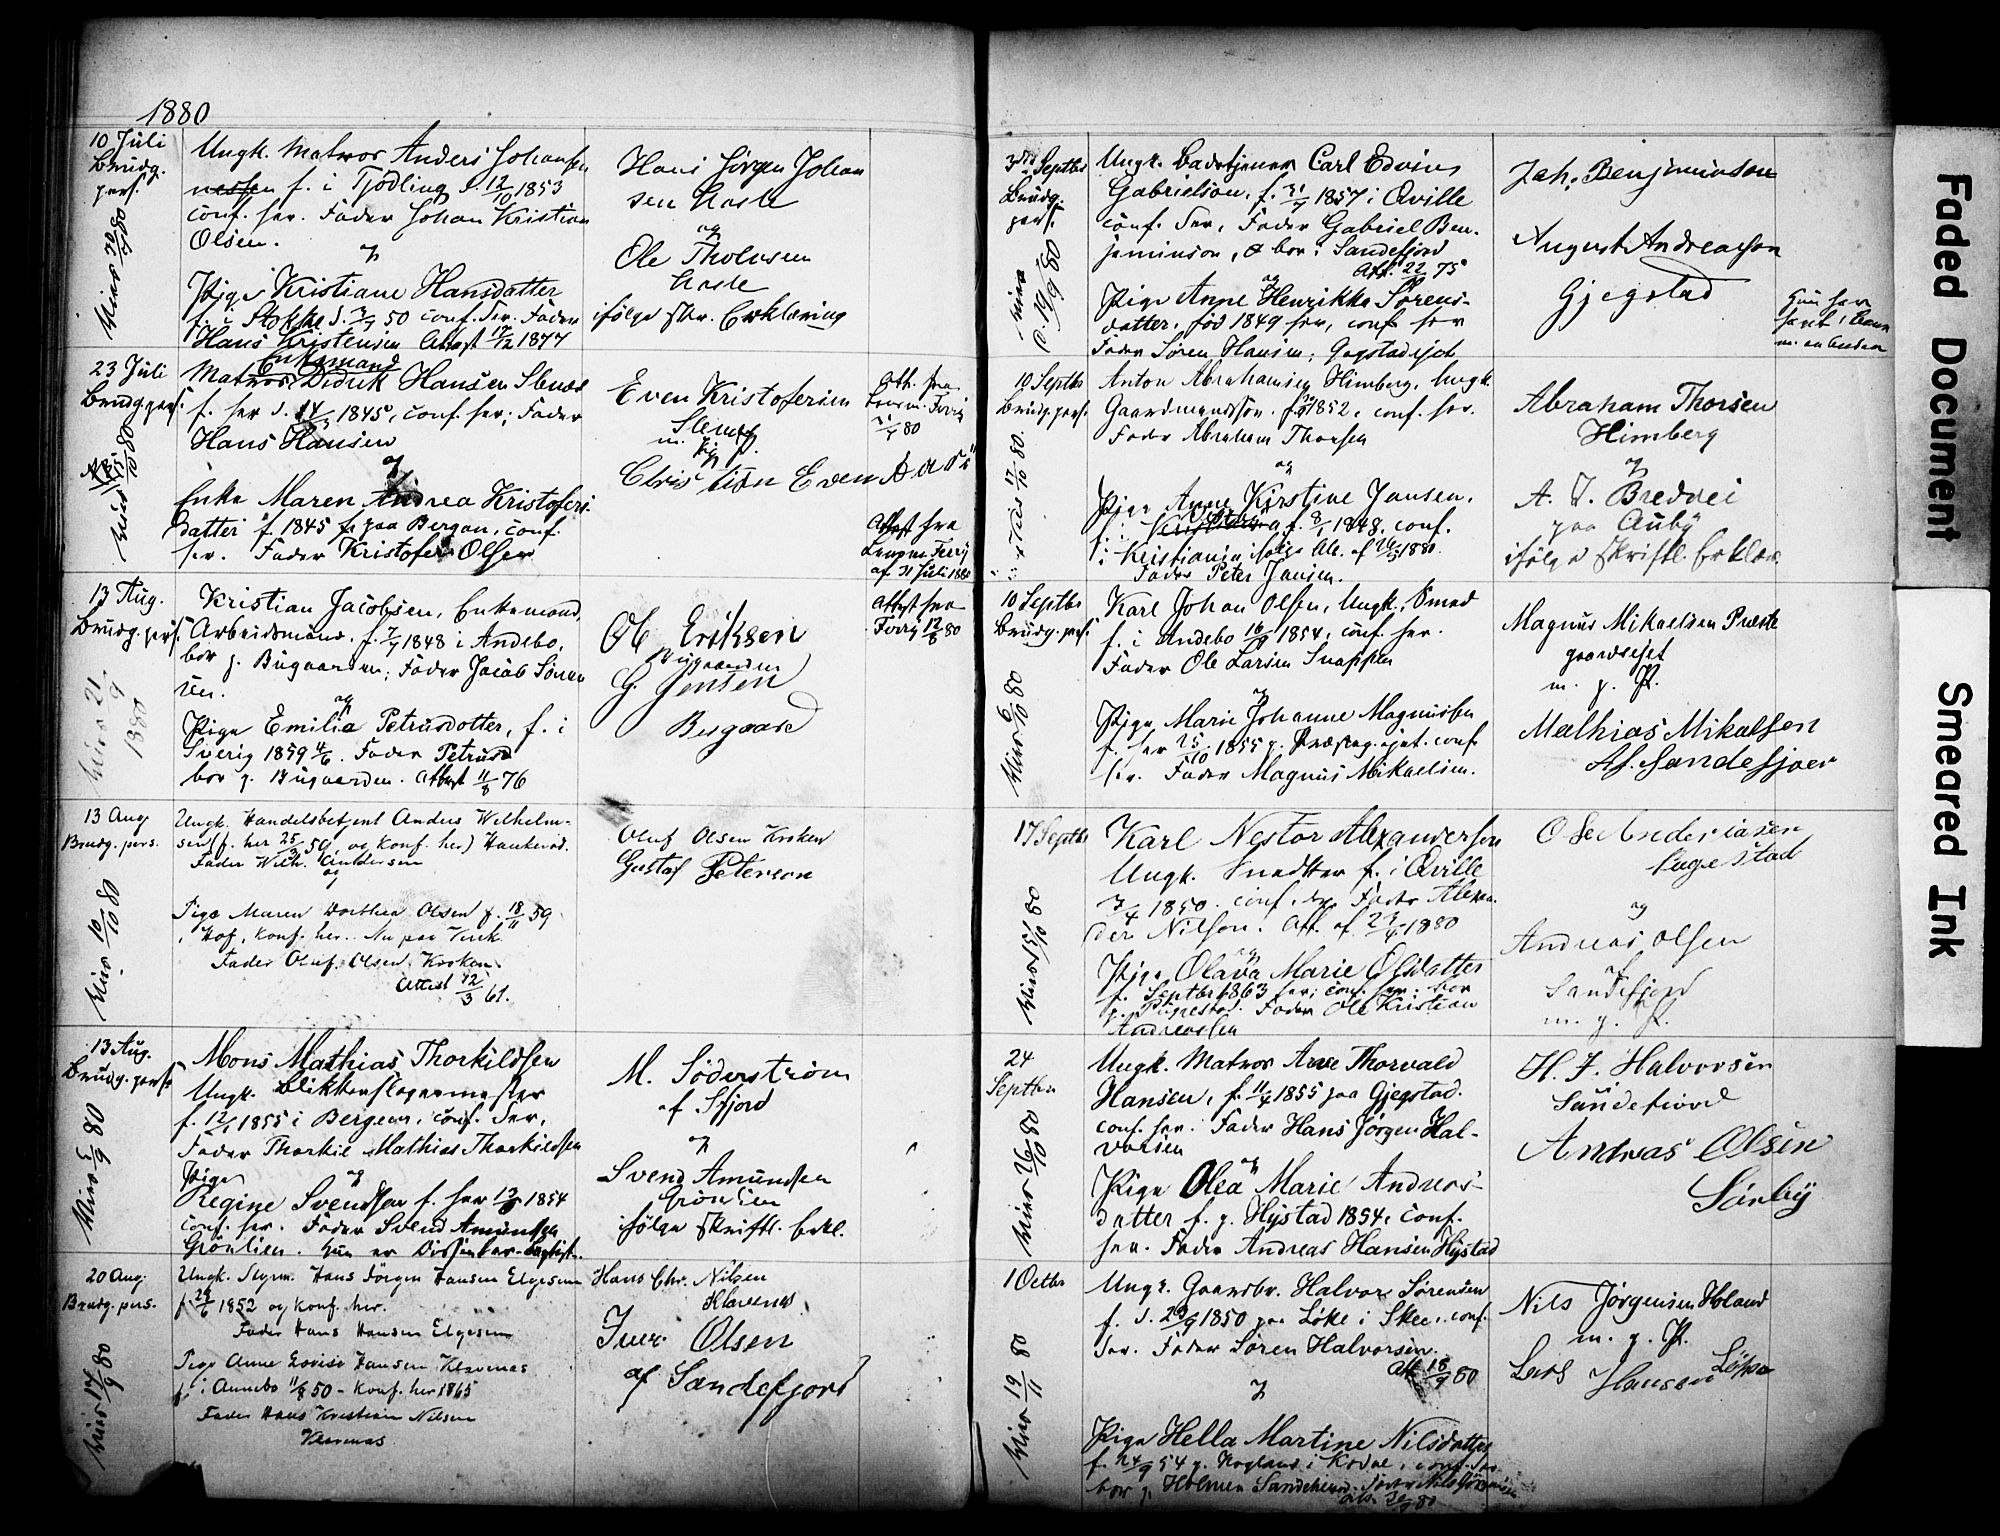 1880
10 Juli
Brudg.
pers.
Ungk. Matros Anders Johansen
f. i Tjödling d. 12/10 1853
conf. her. Fader Johan Kristian
Olsen.
og
Pige Kristiane Hansdatter
f. i Stokke d. 50 conf. her. Fader
Hans Kristensen Attest 1877
Hans Jörgen Johan
sen Hasle
og
Ole Tholvsen
Hasle
ifölge skr. Erklæring
23 Juli
Brudg. pers.
Enkemand
Matros Didrik Hansen
f. her d. 14 1845, conf. her; Fader
Hans Hansen
og
Enke Maren Andrea Kristofers
datter f. 1845 paa Bergan, conf.
her. Fader Kristofer Olsen
Even Kristofersen
m. p. P.
Att. fra
80
Attest fra
af 31 Juli 1880
13 Aug.
Brudg. pers.
21
9
1880
Kristian Jacobsen, Enkemand,
Arbeidsmand. f. 1848 i Andebo,
bor p. Bugaarden; Fader Jacob Sören
sen.
og
Pige Emilia Petrusdotter, f. i
Sverig 1859 4/6. Fader Petrus
bor p. Bugaarden. Attest 11/8 76
Ole Eriksen
Bugaarden
G. Jensen
Bugaard
Attest fra
12/8 80
13 Aug
Brudg. pers.
Viede 10/10 80
Ungk. Handelsbetjent Anders Wilhelm-
sen (f. her 25/3 59, og konf. her) Haukerød.
Fader Wilh. Andersen
og
Pige Maren Dorthea Olsen f. 18/11 59
i Hof, konf. her. Nu paa Virik.
Fader Oluf Olsen Kroken
Attest 12/3 61.
Oluf Olsen Kroken
Gustaf Peterson
13 Aug.
Brudg. pers.
Mons Mathias Thorkildsen
Ungk. Blikkenslagermester
f. 1855 i Bergen, conf. der,
Fader Thorkil Mathias Thorkildsen
og
Pige
Regine Svendsen f. her 1854
conf. her. Fader Svend Amundsen
Grönlien. hun er Dissenter-Baptist.
M. Söderström
af Sfjord
og
Svend Amundsen
Grönlien
ifölge skriftl. Erkl.
20 Aug.
Brudg. pers.
Viede 17/9 80
Ungk. Styrm. Hans Jörgen Hansen Elgesem
f. 1852 og konf. her.
Fader Hans Hansen Elgesem
Pige Anne Lovise Hansen Klavenas
f. i Annebo 11/8 50 - konf. her 1865
Fader Hans Kristian Nilsen
Klavenas
Hans Chr. Nilsen
Klavenas
Iver Olsen
af Sandefjord
3die Septbr
Brudg.
pers.
19/9 80
Ungk. Badetjener Carl Edvin
Gabrielson, f. 31/7 1857 i Qville
conf. der, Fader Gabriel Ben-
jaminson, & bor i Sandefjord
Att. 75
og
Pige Anne Henrikke Sörens-
datter, föd 1849 her, conf. her
Fader Sören Hansen, Gogstadejet
Joh. Benjaminson
August Andreasson
Gjegstad
hun har
havt 1 barn
m. en anden
10 Septbr
Brudg. pers.
17/10 80
Anton Abrahamsen Himberg, Ungk.
Gaardmandssön. f. 1852, conf. her.
Fader Abraham Thorsen
og
Pige Anne Kirstine Jansen,
f. 1848, conf.
i Kristiania ifölge Att. af 1880.
Fader Peter Jansen.
Abraham Thorsen
Himberg
og
A. J. Bredvei
paa Auby
ifölge skriftl. Erklær.
10 Septbr
Brudg. pers.
Karl Johan Olsen, Ungk., Smed
f. i Andebo 16/9 1854, conf. her.
Fader Ole Larsen Snappen
og
Pige Marie Johanne Magnussen
f. her 25/10 1855 p. Præsteg. ejet. conf.
her. Fader Magnus Mikaelsen.
Magnus Mikaelsen Præste
gaardsejet
m. p. P.
Mathias Mikalsen
Af. Sandefjoer
17 Septbr
Karl Nestor Alexandersen
Ungk. Snedker f. i Qville
3/4 1850. conf. der, Fader Alexan
der Nilsson. Att. af 1880
og
Pige Olava Marie Olsdatter
f. Septbr 1863 her; conf. her. bor
p. Pugestad. Fader Ole Kristian
Andreassen
Ole Andreasen
Pugestad
og
Andreas Olsen
af
Sandefjord
m. p. P.
24
Septbr
Viede 26/10 80
Ungk. Matros Arne Thorvald
Hansen, f. 11/4 1855 paa Gjegstad.
conf. her. Fader Hans Jörgen Hal-
vorsen
og
Pige Olea Marie Andreas-
datter f. p. Hystad 1854, conf.
her. Fader Andreas Hansen Hystad
H. J. Halvorsen
Sandefiord
Andreas Olsen
Sörby
1 Octbr
Viede 19/11 80
Ungk. Gaardbr. Halvor Sörensen
f. d. 1850 paa Löke i Skee, conf.
der. Fader Sören Halvorsen.
Att 18/9 80
og
Pige Hella Martine Nilsdatter
f. 24/9 54 p. Hogland i Kodal, conf. her
bor p. Holmen Sandeherred. Fader Nils Jörgensen
Nils Jörgensen Holand
m. p. P.
Lars Hansen Löka
Faded Document
Smeared Ink